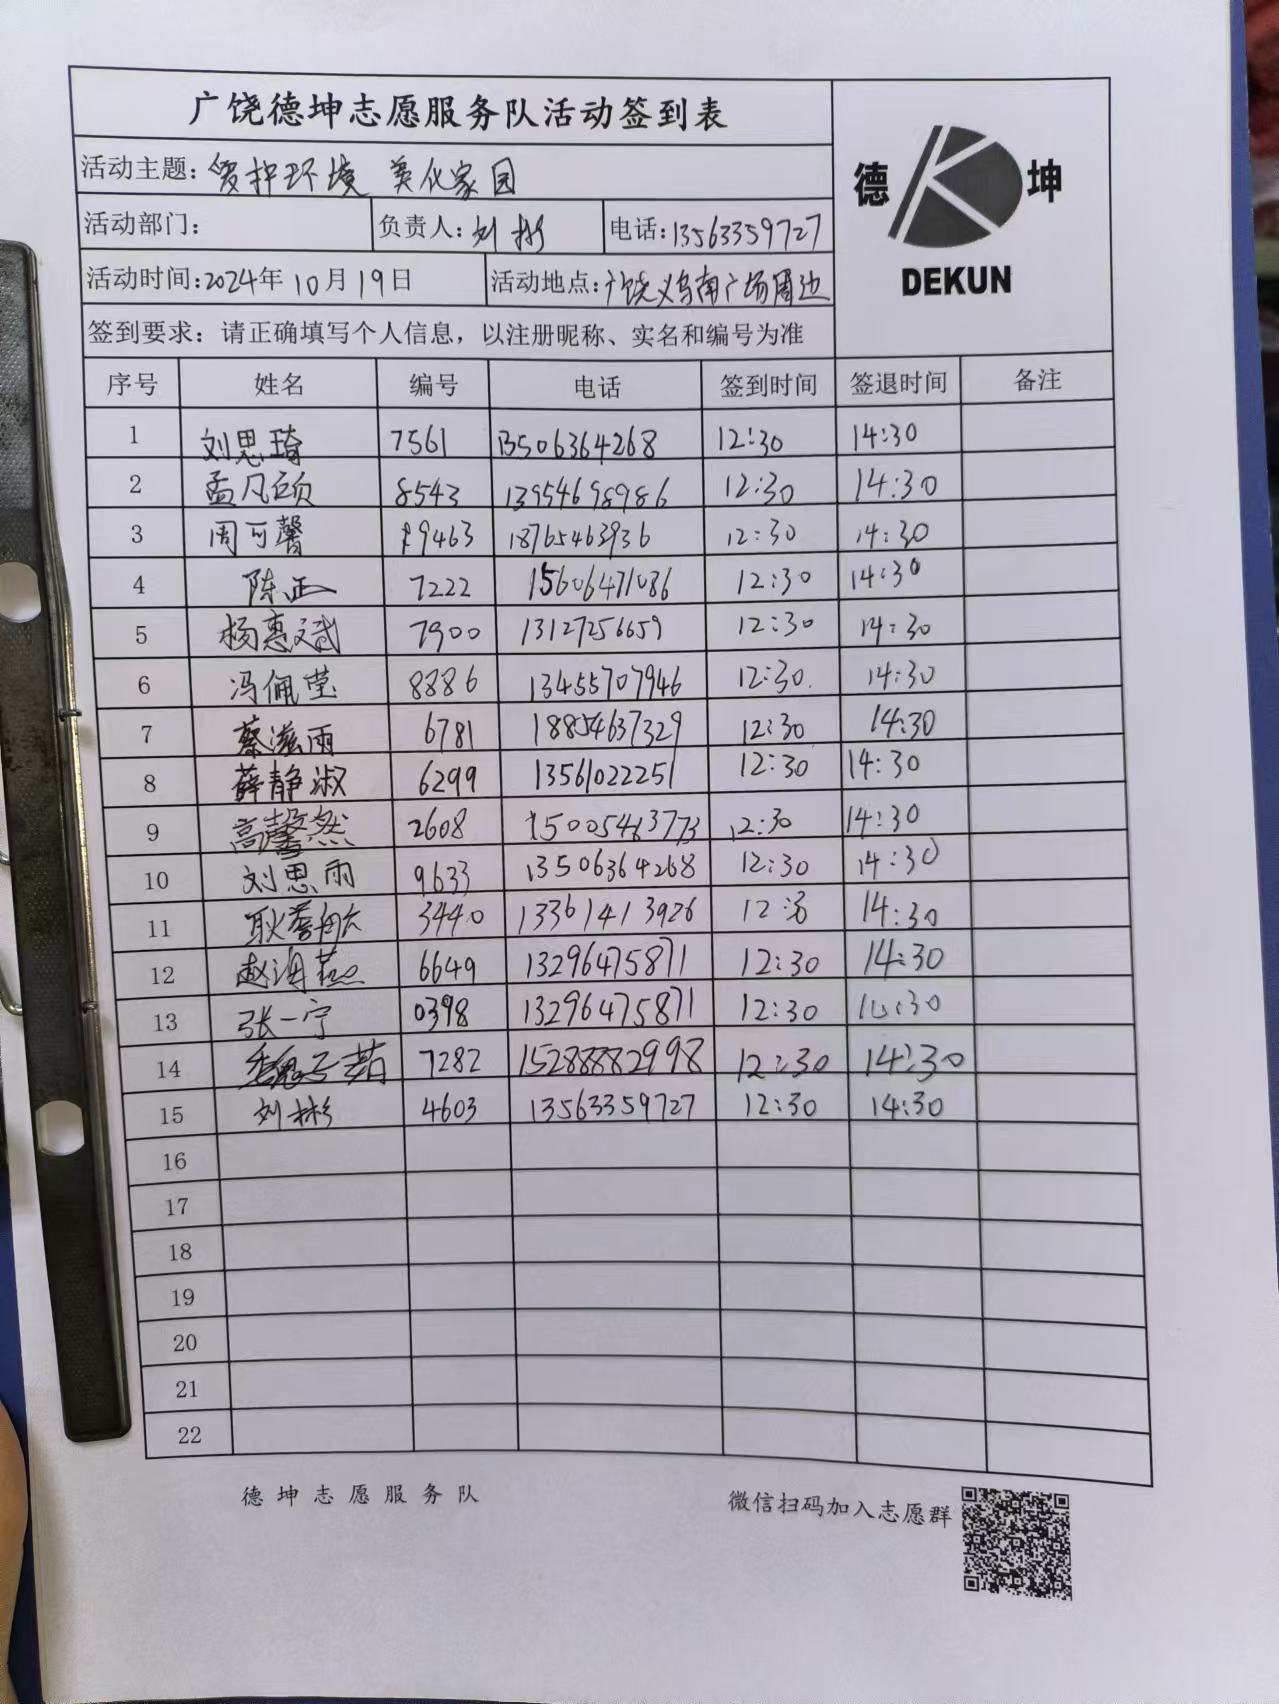 广饶德坤志愿服务队活动签到表
活动主题：爱护环境 美化家园
德 坤
DEKUN
活动部门： 负责人：刘彬 电话：13563359727
活动时间：2024年10月19日 活动地点：广饶义乌南广场周边
签到要求：请正确填写个人信息，以注册昵称、实名和编号为准
序号 姓名 编号 电话 签到时间 签退时间 备注
1 刘思琦 7561 13506364268 12:30 14:30
2 孟凡硕 8543 13954698986 12:30 14:30
3 周可馨 9463 18765463936 12:30 14:30
4 陈正 7222 15606471086 12:30 14:30
5 杨惠斌 7900 13127256659 12:30 14:30
6 冯佩莹 8886 13455707946 12:30 14:30
7 蔡滋雨 6781 18854637329 12:30 14:30
8 薛静淑 6299 13561022251 12:30 14:30
9 高馨然 2608 15005463773 12:30 14:30
10 刘思雨 9633 13506364268 12:30 14:30
11 耿 3440 13361413926 14:30
12 赵海燕 6649 13296475871 12:30 14:30
13 张一宁 0398 13296475871 12:30 14:30
14 魏 7282 15288882998 12:30 14:30
15 刘彬 4603 13563359727 12:30 14:30
16
17
18
19
20
21
22
德坤志愿服务队 微信扫码加入志愿群